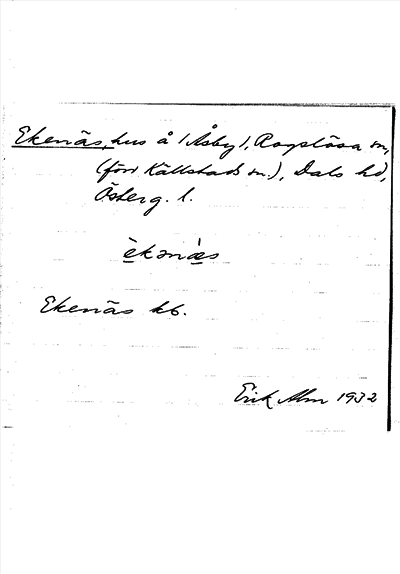 Ekenäs, hus å (Åsby), Rogslösa sn,
(förr Källstads sn.), Dals hd,
Österg. l.
èkənä̀s
Ekenäs kb.
Erik Alm 1932